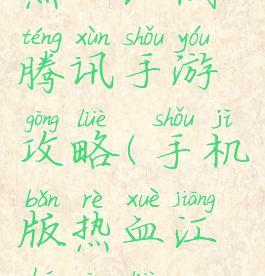 téng xùn shǒu yóu
腾讯手游
gōng lüè shǒu jī
攻略(手机
bǎn rè xuè jiāng
版热血江